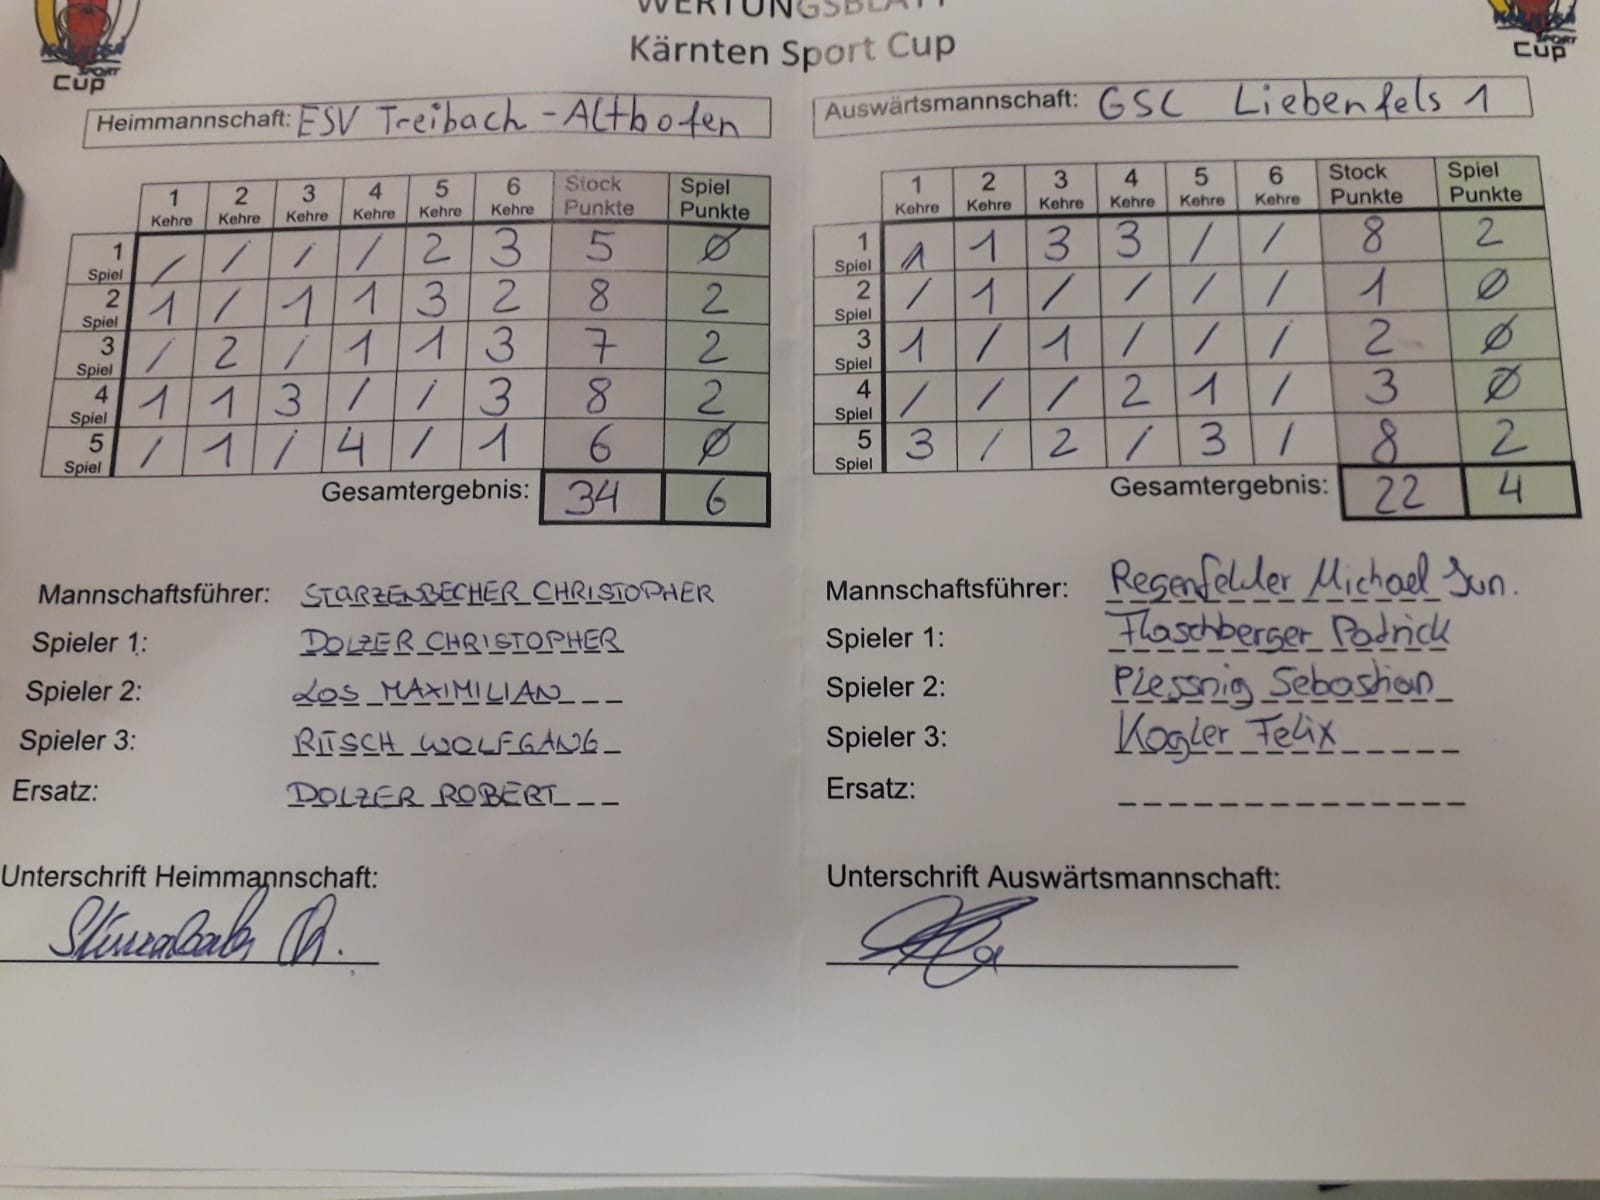 WERTUNGSBLATT
Kärnten Sport Cup
Cup
Cup
Heimmannschaft: ESV Treibach-Althofen
1 Kehre 2 Kehre 3 Kehre 4 Kehre 5 Kehre 6 Kehre Stock Punkte Spiel Punkte
1 Spiel / / / / 2 3 5 Ø
2 Spiel 1 / 1 1 3 2 8 2
3 Spiel / 2 / 1 1 3 7 2
4 Spiel 1 1 3 / / 3 8 2
5 Spiel / 1 / 4 / 1 6 Ø
Gesamtergebnis: 34 6
Mannschaftsführer: STARZENBECHER CHRISTOPHER
Spieler 1: DOLZER CHRISTOPHER
Spieler 2: LOS MAXIMILIAN
Spieler 3: RITSCH WOLFGANG
Ersatz: DOLZER ROBERT
Unterschrift Heimmannschaft:
Auswärtsmannschaft: GSC Liebenfels 1
1 Kehre 2 Kehre 3 Kehre 4 Kehre 5 Kehre 6 Kehre Stock Punkte Spiel Punkte
1 Spiel 1 1 3 3 / / 8 2
2 Spiel / 1 / / / / 1 Ø
3 Spiel 1 / 1 / / / 2 Ø
4 Spiel / / / 2 1 / 3 Ø
5 Spiel 3 / 2 / 3 / 8 2
Gesamtergebnis: 22 4
Mannschaftsführer: Regenfelder Michael Jun.
Spieler 1: Flaschberger Patrick
Spieler 2: Plessnig Sebastian
Spieler 3: Kogler Felix
Ersatz:
Unterschrift Auswärtsmannschaft: